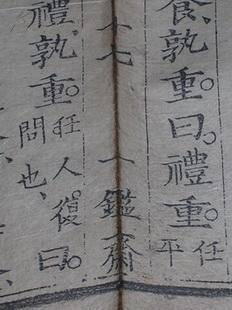 食、孰重。曰。禮重。任
平
十七 一鑑齋
禮、孰重。任人復
問也、
曰。